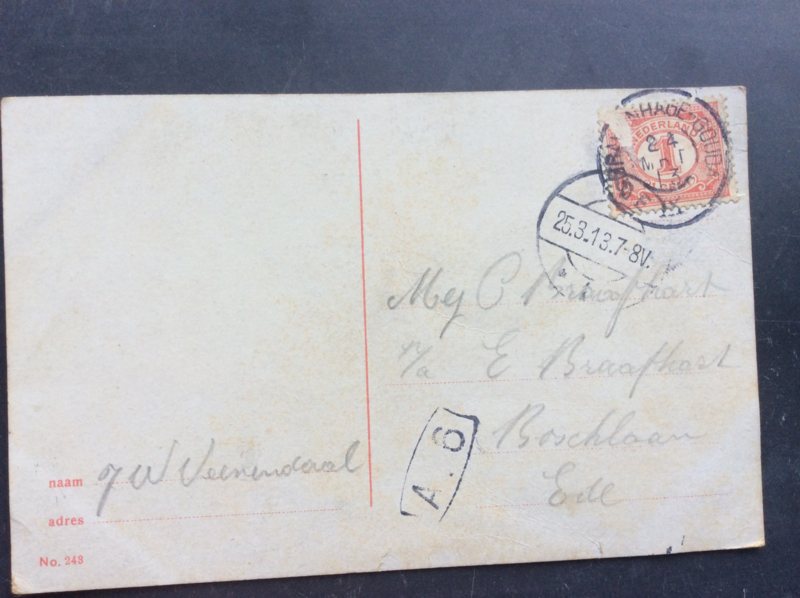 NEDERLAND
1
24
MRT
13
25.3.13.7-8V.
Mej C Braafhart
p/a E Braafhart
Boschlaan
Ede
A.6
J W Veenendaal
naam
adres
No. 248